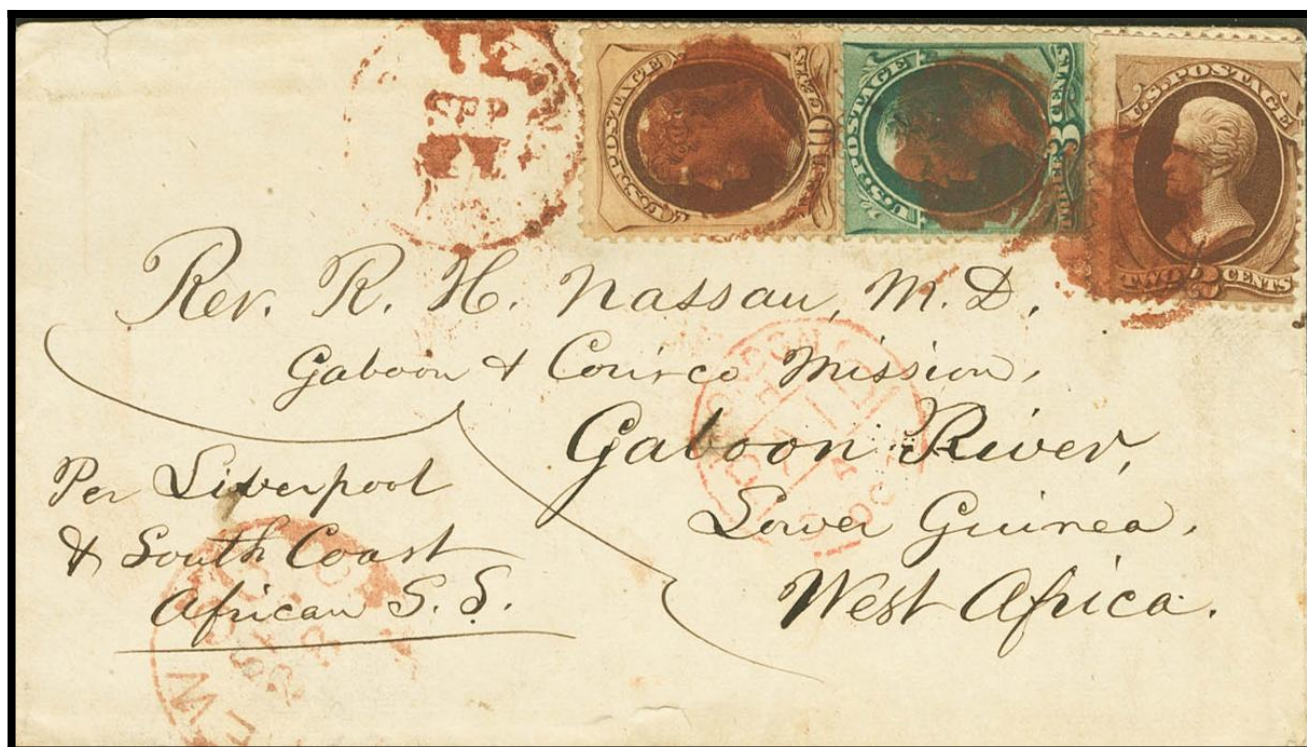 U.S. POSTAGE
U.S. POSTAGE
3
U.S. POSTAGE
TWO 2 CENTS
SEP
Rev. R. H. Nassau, M.D.
Gaboon & Corisco Mission,
Gaboon River,
Lower Guinea,
West Africa.
Per Liverpool
& South Coast
African S.S.